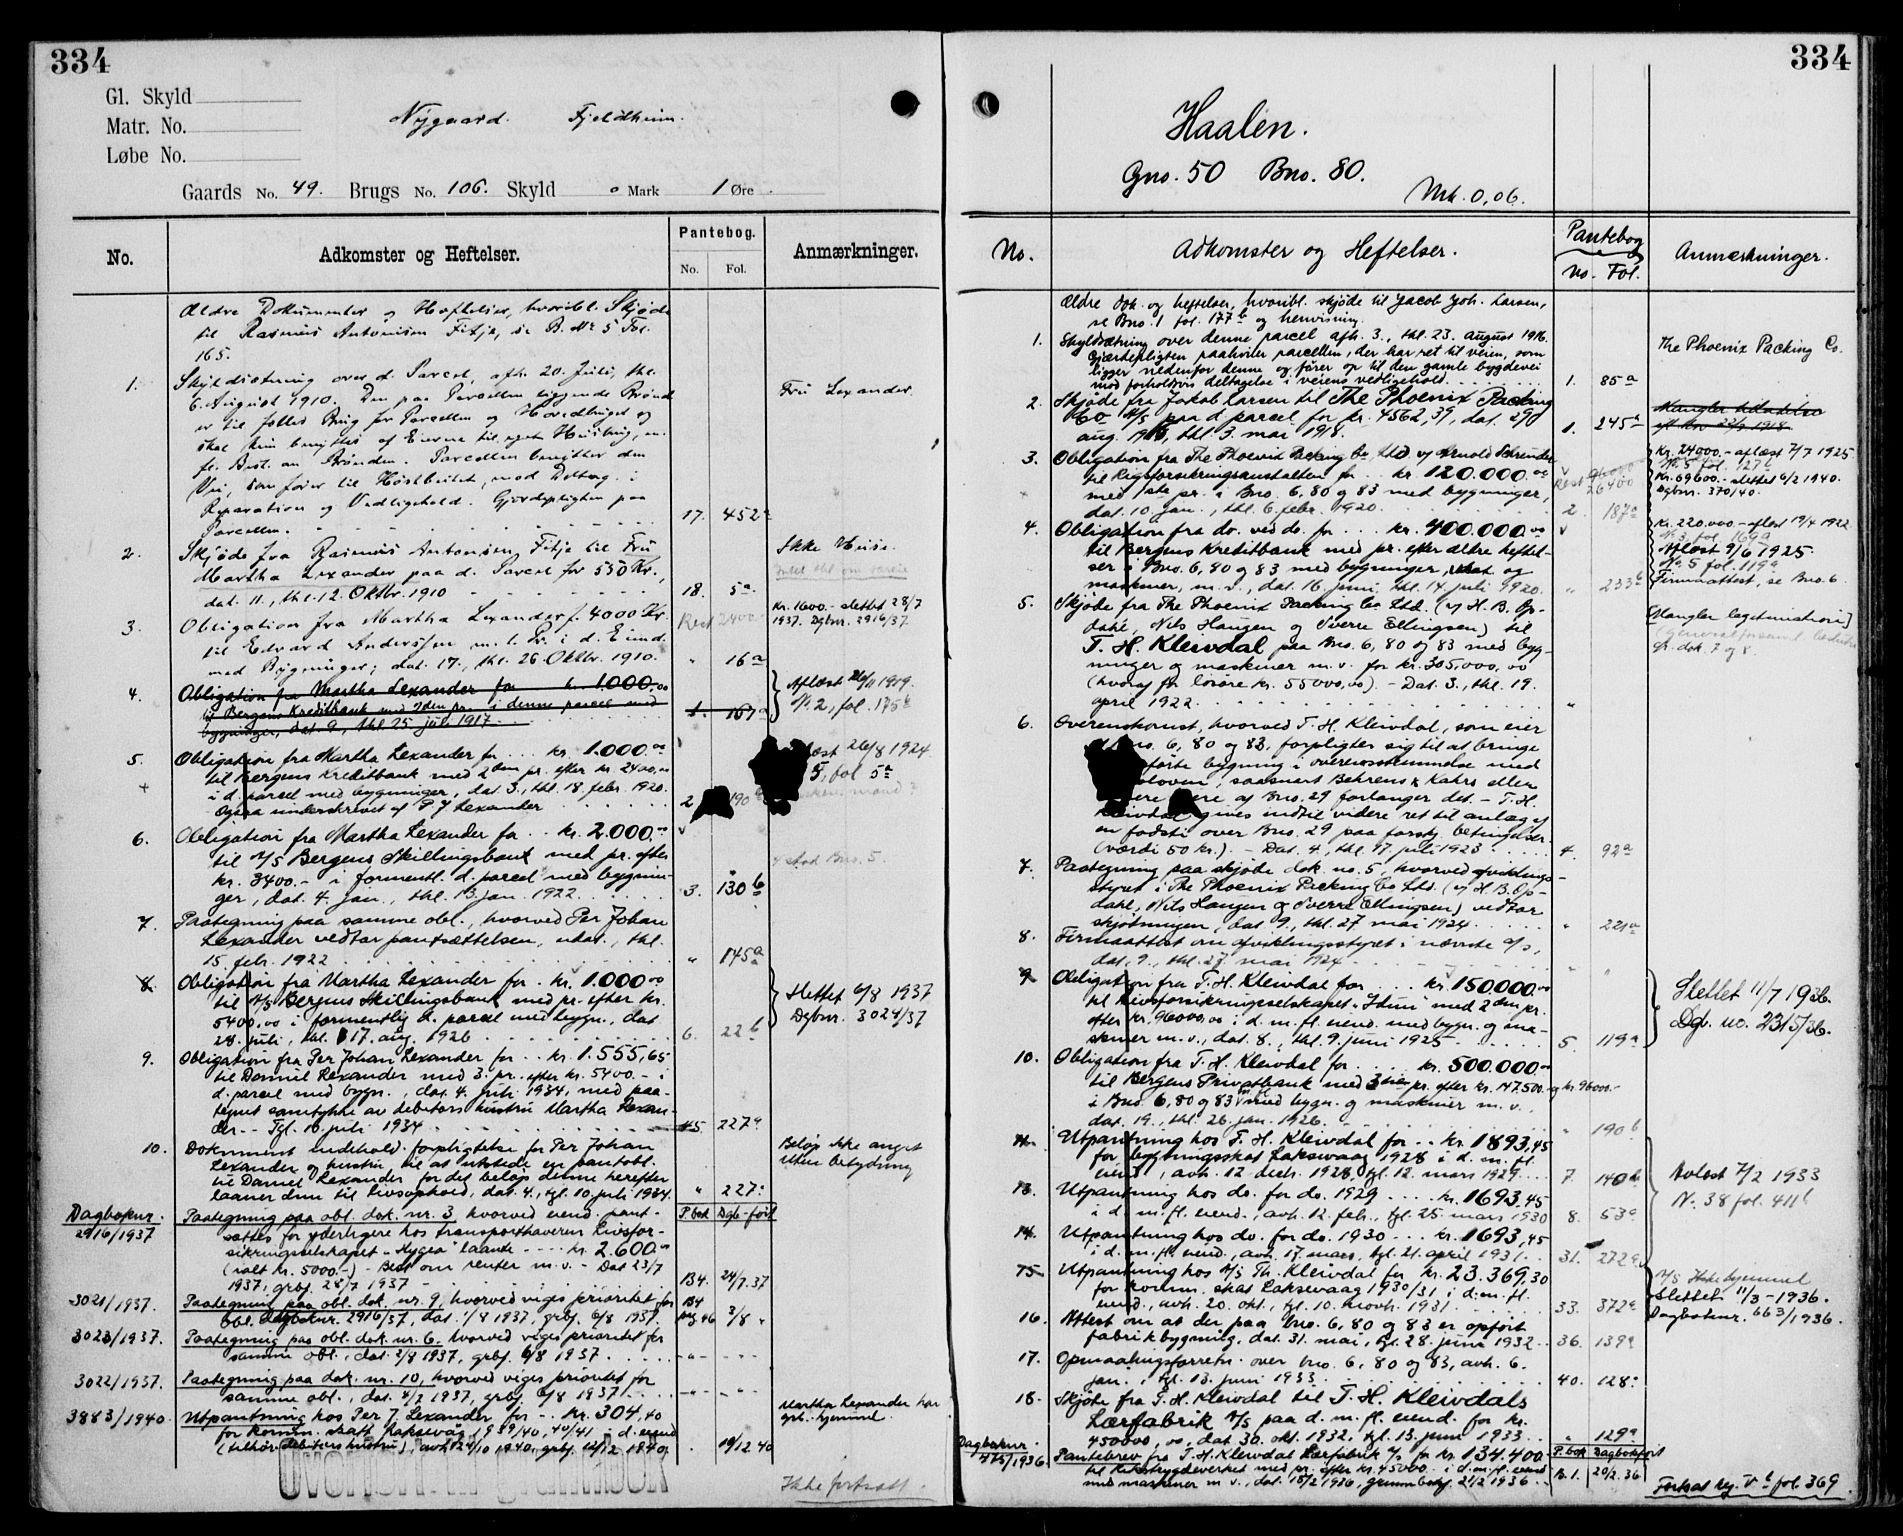 334
Gl. Skyld
Matr. No.
Løbe No.
Nygaard. Fjeldheim.
Gaards No. 49. Brugs No. 106. Skyld 0 Mark 1 Øre
No. Adkomster og Heftelser. Pantebog. No. Fol. Anmærkninger.
Ældre Dokumenter og Heftelser, hvoribl. Skjøde
til Rasmus Antonisen Fitje, se B. No 5 Fol.
165.
1. Skyldsætning over d. Parcel, afh. 20. Juli, thl.
6. August 1910. Den paa Parcellen liggende Brønd
er til fælles Brug for Parcellen og Hovedbruget og
skal kun benyttes af Eierne til eget Husbrug, m.
fl. Best. om Brønden. Parcellen benytter den
Vei, som fører til Høstbeitet, mod Deltag. i
Reparation og Vedligehold. Gjerdepligten paa
Parcellen. 17. 452a
Fru Lexander.
2. Skjøde fra Rasmus Antonisen Fitje til Fru
Martha Lexander paa d. Parcel for 550 Kr.,
dat. 11., thl. 12. Oktbr. 1910 18. 5a
Ikke Huse.
3. Obligation fra Martha Lexander f. 4000 Kr.
til Edvard Anderssen m. 1. Pr. i d. Eiend.
med Bygninger; dat. 17., thl. 26. Oktbr. 1910. " 16a
Rest 2400
Kr. 1600.- slettet 28/7
1937. Dgbnr. 2916/37.
4. Obligation fra Martha Lexander for kr. 1.000,00
til Bergens Kreditbank med 2den pr. i denne parcel med
bygninger, dat. 9., thl. 25. juli 1917. 1. 167a
Aflæst 26/11 1919.
N. 2, fol. 175b
5. Obligation fra Martha Lexander for kr. 1.000,00
til Bergens Kreditbank med 2den pr. efter kr. 2400,00
i d. parcel med bygninger, dat. 3., thl. 18. febr. 1920.
Ogsaa underskrevet af P. J. Lexander 2 190
læst 26/8 1924
5, fol 5a
6. Obligation fra Martha Lexander for kr. 2.000,00
til A/S Bergens Skillingsbank med pr. efter
kr. 3400.- i formentl. d. parcel med bygnin-
ger, dat. 4. jan., thl. 13. jan. 1922 3. 130b
7. Paategning paa samme obl., hvorved Per Johan
Lexander vedtar pantsættelsen, udat., thl.
15. febr. 1922 " 145a
8. Obligation fra Martha Lexander for kr. 1.000,00
til A/S Bergens Skillingsbank med pr. efter kr.
5400,00 i formentlig d. parcel med bygn., dat.
28. juli, thl. 17. aug. 1926 6. 22b
Slettet 6/8 1937
Dgbnr. 3024/37
9. Obligation fra Per Johan Lexander for kr. 1.555,65
til Daniel Lexander med 3. pr. efter kr. 5400.- i
d. parcel med bygn., dat. 4. juli 1934, med paa-
tegnet samtykke av debitors hustru Martha Lexan-
der.- Tgl. 10. juli 1934 15. 227a
10. Dokument indehold. forpligtelse for Per Johan
Lexander og hustru til at utstede en pantobl.
til Daniel Lexander for det beløp denne herefter
laaner dem til livsophold, dat. 4., tgl. 10. juli 1934. " 227a
Beløp ikke anget
Uten betydning
Dagboknr.
2916/1937
Paategning paa obl. dok. nr. 3 hvorved eiend. pant- P.bok Dgb-ført
sættes for yderligere hos transporthaveren Livsfor-
sikringsselskapet "Hygea" laante kr. 2.600,00
(ialt kr. 5000.-) - Best om renter m.v.- Dat 23/7
1937, grbf. 28/7 1937 B4. 24/7.37
3021/1937. Paategning paa obl. dok. nr. 9, hvorved viges prioritet for B4
obl. Dagboknr. 2916/37, dat. 1/8 1937, grbf. 6/8 1937. 3/8 "
3023/1937. Paategning paa obl. dok. nr. 6. hvorved viges prioritet for
samme obl., dat. 2/8 1937, grbf. 6/8 1937 -"- -"-
3022/1937. Paategning paa dok. nr. 10, hvorved viges prioritet for
samme obl., dat. 4/7 1937, grbf. 6/8 1937. -"- -"-
3883/1940. Utpantning hos Per J. Lexander for kr. 304,40
for komm. skatt Laksevåg 1939/40, 40/41 - d. eiend
(tilhør. debitors hustru), avh. 24/10 1940, grbf. 12/12 1940. 10/12 40
Martha Lexander har
grb. hjemmel.
Ikke fortsatt
334
Haalen.
Gno. 50 Bno. 80.
Mrk. 0,06.
No. Adkomster og Heftelser. Pantebog No. Fol. Anmærkninger.
Ældre dok. og heftelser, hvoribl. skjøde til Jacob Joh. Larsen,
se Bno. 1 fol. 177b og henvisning.
1. Skyldsætning over denne parcel afh. 3., thl. 23. august 1916.
Gjærdepligten paahviler parcellen, der har ret til veien, som
ligger nedenfor denne og fører op til den gamle bygdevei
mod forholdsvis deltagelse i veiens vedligehold. 1. 85a
The Phoenix Packing Co.
2. Skjøde fra Jakob Larsen til The Phoenix Packing
Co A/S paa d. parcel for kr. 4562,39, dat. 29
aug. 1916, thl. 3. mai 1918. 1. 245a
3. Obligation fra The Phoenix Packing Co. Ltd v/ Arnold Schreuder
til Rigsforsikringsanstalten for kr. 120.000,00
med 1ste pr. i Bno. 6, 80 og 83 med bygninger,
dat. 10. jan., thl. 6. febr. 1920. 2. 187a
Kr. 24000.- aflæst 7/7 1925
N. 5 fol. 127a
Kr. 69600.- slettet 6/2 1940.
Dgbnr. 370/40.
4. Obligation fra do. ved do. for kr. 400.000,00
til Bergens Kreditbank med pr. efter ældre heftel-
ser i Bno. 6, 80 og 83 med bygninger, og
maskiner, m. v., dat. 16. juni, thl. 14. juli 1920. " 233b
Kr. 220.000.- aflæst 19/4 1922
N. 3 fol. 169a
Aflæst 9/6 1925.
N. 5 fol. 119a
Firmaattest, se Bno. 6.
5. Skjøde fra The Phoenix Packing Co. Ltd. (v/ H. B. Op-
dahl, Nils Haugen og Sverre Ellingsen) til
T. H. Kleivdal paa Bno. 6, 80 og 83 med byg-
ninger og maskiner m. v. for kr. 305.000,00
(hvoraf for løsøre kr. 55000,00). - Dat. 3., thl. 19.
april 1922. "
Mangler legitimation]
fr. dok. 7 og 8.
6. Overenskomst, hvorved T. H. Kleivdal, som eier
no. 6, 80 og 83, forpligter sig til at bringe
førte bygning i overensstemmelse med
loven, saasnart Behrens & Kahrs eller
ere eiere af Bno. 29 forlanger det. - T. H.
Kleivdal gives indtil videre ret til anlæg af
en fodsti over Bno. 29 paa forskj. betingelser.
(værdi 50 kr.). - Dat. 4., thl. 17. juli 1923 4. 92a
7. Paategning paa skjøde dok no. 5, hvorved afviklings-
styret i The Phoenix Packing Co Ltd. (v/ H. B. Op-
dahl, Nils Haugen og Sverre Ellingsen) vedtar
skjøtningen, dat 9., thl. 27 mai 1924. " 221a
8. Firmaattest om afviklingsstyret i nævnte a/s,
dat. 9., thl. 27. mai 1924. " "
9. Obligation fra T. H. Kleivdal for kr. 150.000,00
til Livsforsikringsselskapet "Idun" med 2den pr.
efter kr. 96000,00 i d. m. fl. eiend. med bygn. og ma-
skiner m. v., dat. 8., thl. 9. juni 1925 5. 119a
Slettet 11/7 1936.
Dgb. no. 2315/36.
10. Obligation fra T. H. Kleivdal for kr. 500.000,00
til Bergens Privatbank med 3die pr. efter kr. 147.500.- og kr. 96000.-
i Bno. 6, 80 og 83 med bygn. og maskiner m. v.,
dat. 19., thl. 26. jan. 1926. " 190b
11. Utpantning hos T. H. Kleivdal for kr. 1893,45
for bygningsskat Laksevaag 1928 i d. m. fl.
eiend., avh. 12. decb. 1928, tgl. 12. mars 1929 7. 140b
Avlæst 7/2 1933
N. 38 fol. 411b
13. Utpantning hos do. for do. 1929 kr. 1693,45
i d. m. fl. eiend., avh. 12. feb., tgl. 25. mars 1930 8. 53a
14. Utpantning hos do. for do. 1930 kr. 1693,45
i d. m. fl. eiend., avh. 17. mars, tgl. 21. april 1931. 31. 272a
15. Utpantning hos A/S Th. Kleivdal for kr. 23.369,30
for komm. skat Laksevaag 1930/31 i d. m. fl.
eiend., avh. 20. okt., tgl. 10. novb. 1931. 33. 372a
A/S Ikke hjemmel
Slettet 11/3-1936.
Dagboknr. 663/1936.
16. Attest om at der paa bno. 6, 80 og 83 er opført
fabrikbygning, dat. 31. mai, tgl. 28. juni 1932 36. 139a
17. Opmaalingsforretn. over bno. 6, 80 og 83, avh. 6.
jan., tgl. 13. juni 1933 40. 128a
18. Skjøte fra T. H. Kleivdal til T. H. Kleivdals
Lærfabrik A/S paa d. m. fl. eiend. for kr.
450000,00, dat. 30. okt. 1932, tgl. 13. juni 1933 " 129a
Dagboknr.
475/1936.
Pantebrev fra T. H. Kleivdal Lærfabrik A/S for kr. 134.400.- P.bok Dagbokført
til Rikstrygdeverket med pr. efter kr. 45000.- i d. m. fl. eiend
med maskiner m. v., dat. 18/2 1936, grunnboksf. 21/2 1936 B.1. 20/2.36
Fortsat reg. V b fol. 369